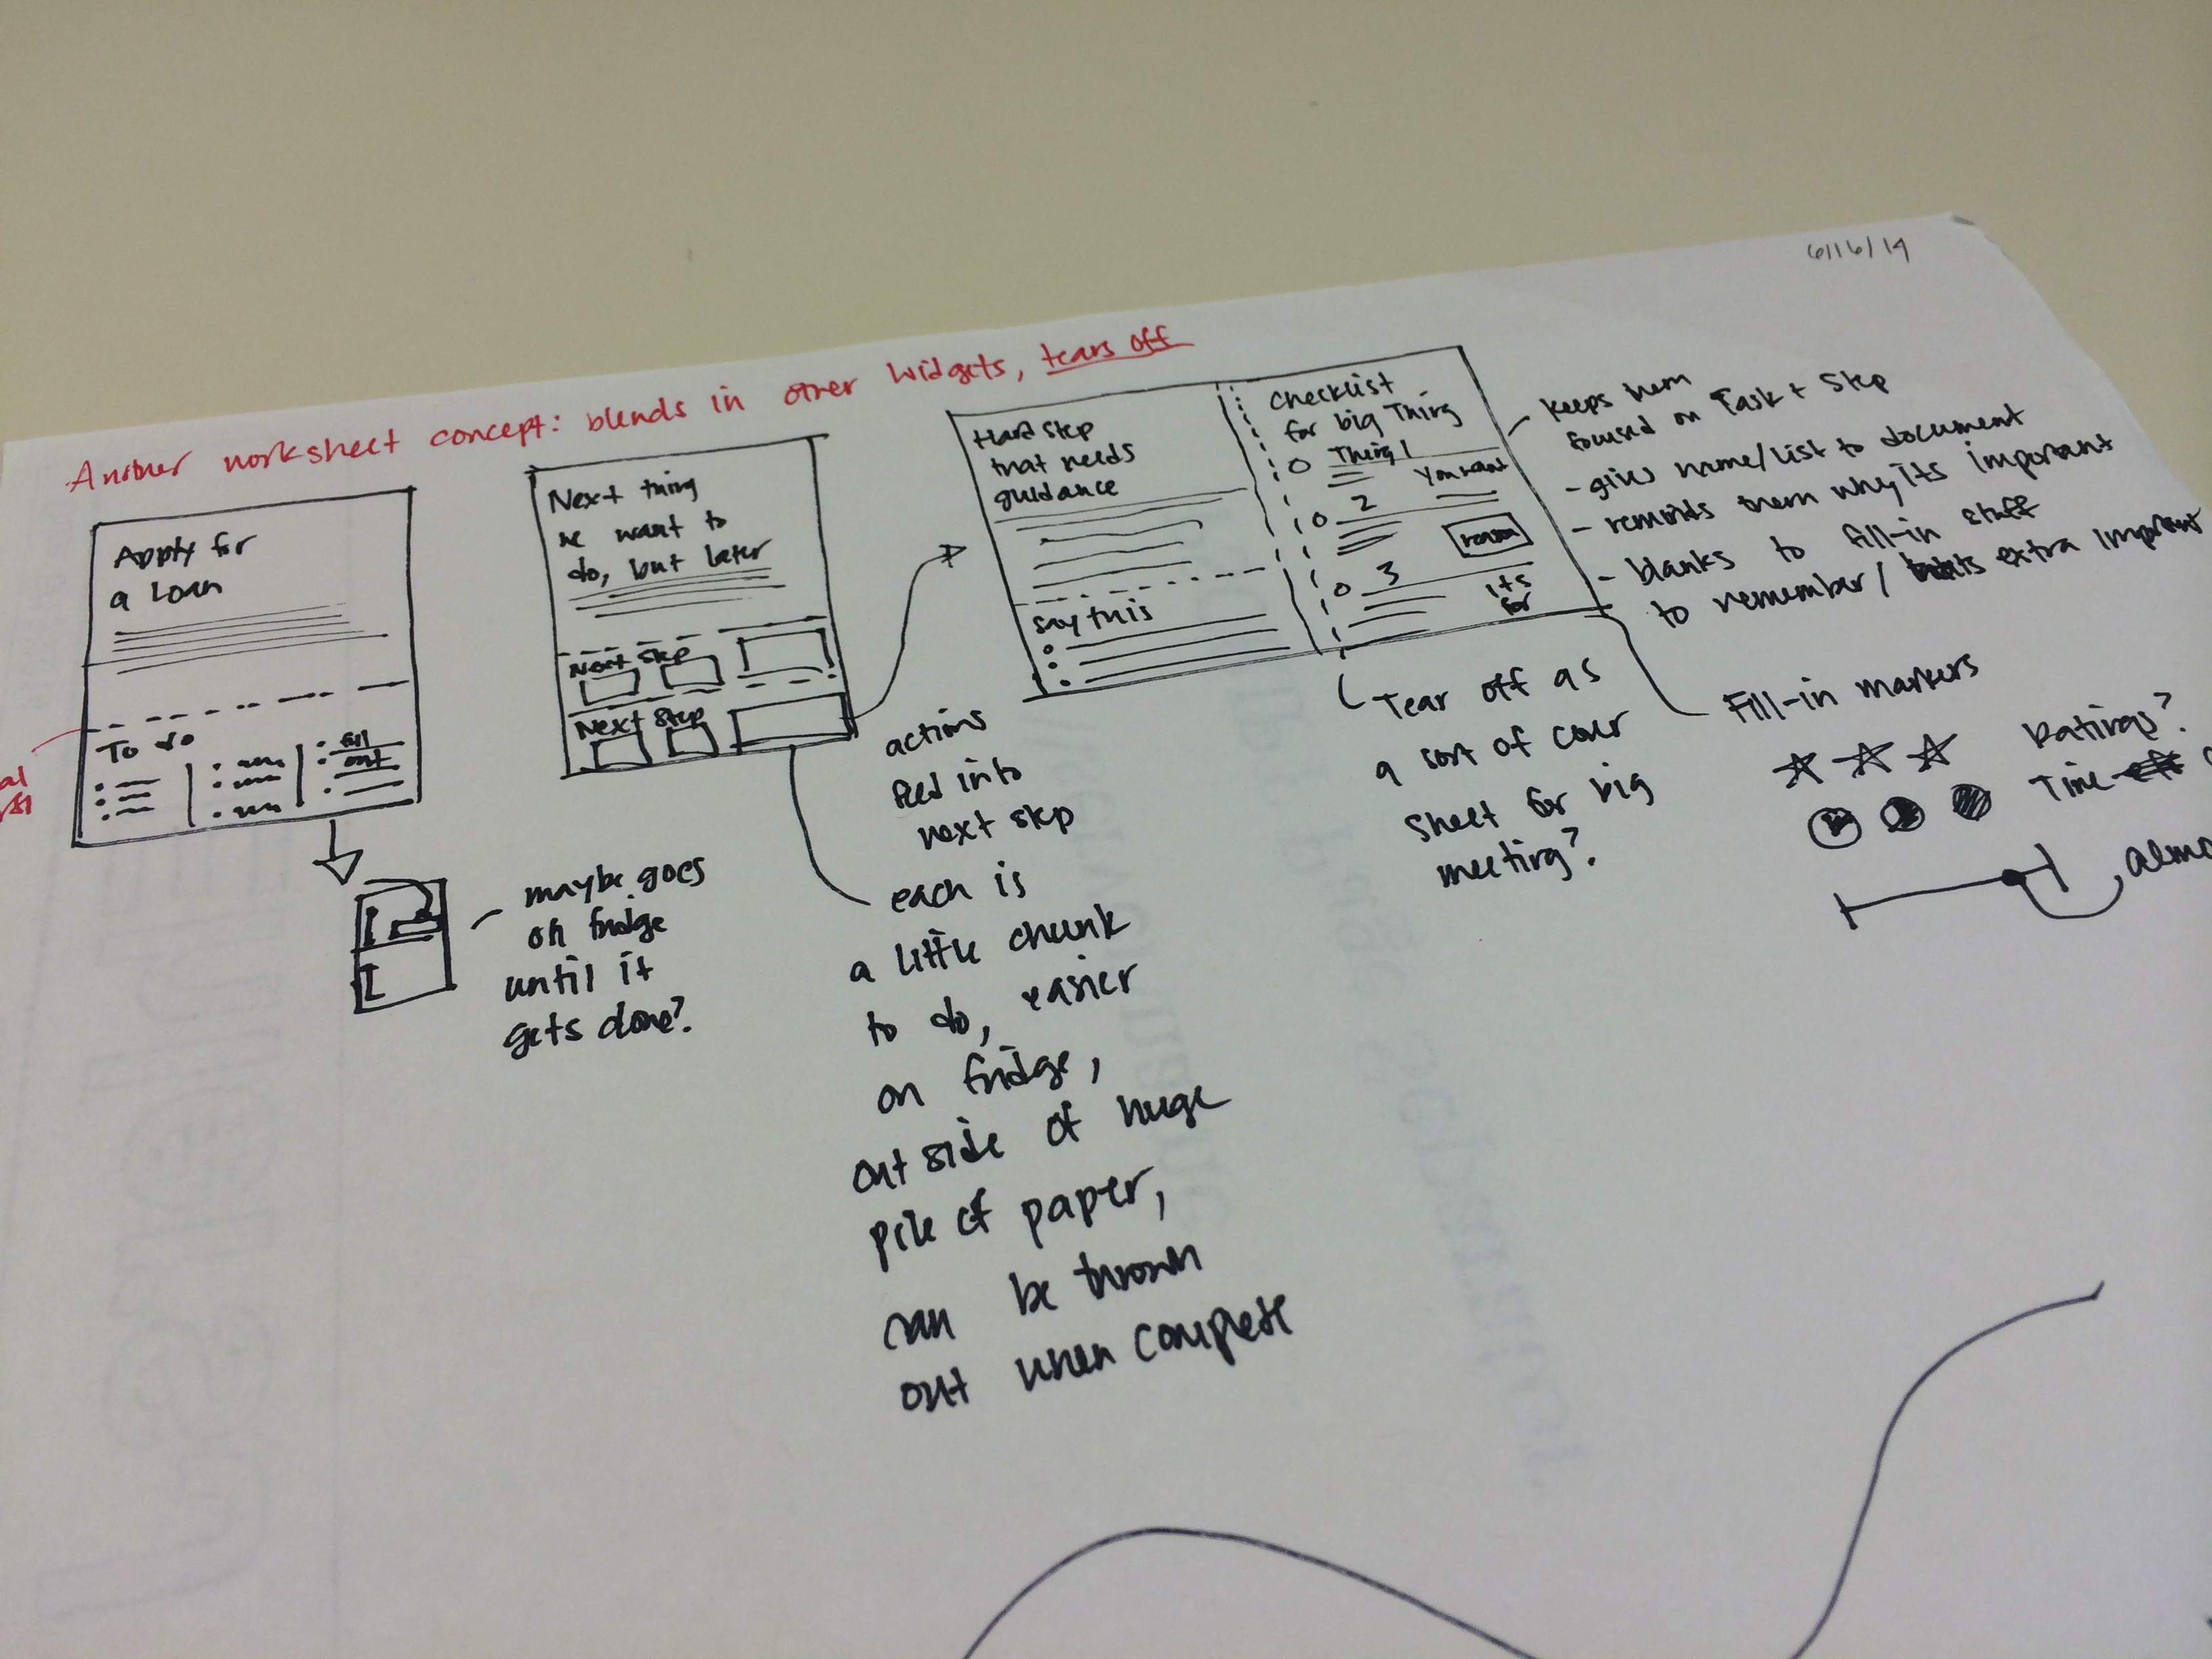 6/16/14
Another worksheet concept: blends in other widgets, tears off
Apply for
a Loan
To do
fill
out
maybe goes
on fridge
until it
gets done?
Next thing
we want to
do, but later
Next Step
Next Step
actions
feed into
next step
each is
a little chunk
to do, easier
on fridge,
outside of huge
pile of paper,
can be thrown
out when complete
Hard step
that needs
guidance
Say this
Checklist
for big Thing
Thing 1
You want
2
3
its
for
Tear off as
a sort of cover
sheet for big
meeting?
keeps them
focused on Task + Step
- gives name/list to document
- reminds them why its important
- blanks to fill-in stuff
to remember/ extra important
Fill-in markers
Ratings?
Time